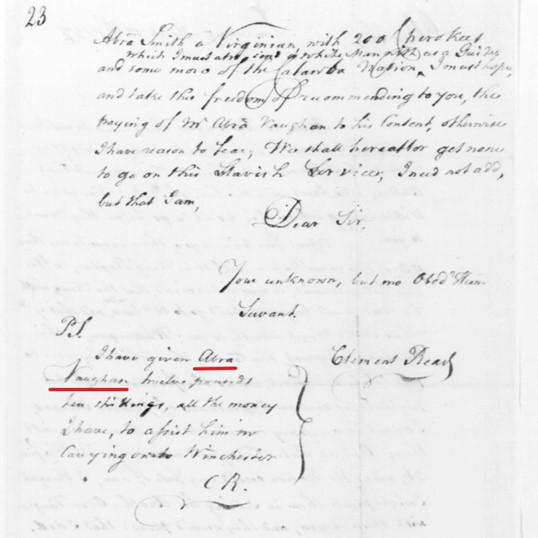 23
Abra Smith a Virginian, with 200 Cherokees
which I must also send a White Man with as a Guide,
and some more of the Catawba Nation, I must hope,
and take this freedom of recommending to you, the
paying of Mr Abra Vaughan to his Content, otherwise
I have reason to fear, We shall hereafter get none
to go on this Slavish Service, I need not add,
but that I am,
Dear Sir,
Your unknown, but mo Obedt Hum
Servant
P.S.
Clement Read
I have given Abra
Vaughan twelve pounds
ten shillings, all the money
I have, to assist him in
Carrying on to Winchester
CR.